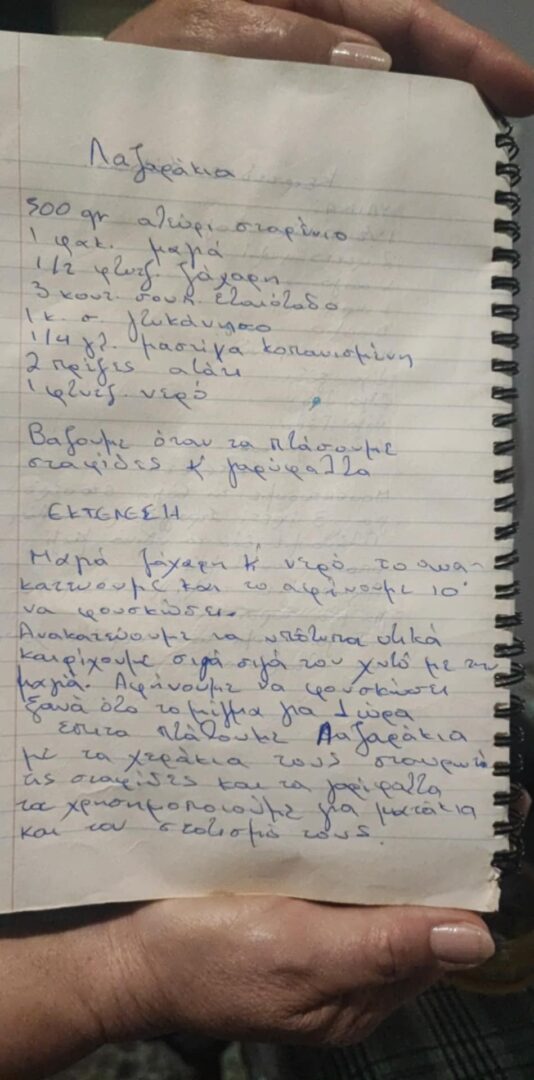 Λαζαράκια
500 gr αλεύρι σταρένιο
1 φακ. μαγιά
1/2 φλυτζ. ζάχαρη
3 κουτ. σουπ. ελαιόλαδο
1 κ. σ. γλυκάνισο
1/4 γλ. μαστίχα κοπανισμένη
2 πρέζες αλάτι
1 φλυτζ. νερό
Βάζουμε όταν τα πλάσουμε
σταφίδες κ' γαρύφαλλα
ΕΚΤΕΛΕΣΗ
Μαγιά ζάχαρη κ' νερό το ανα-
κατευουμε και το αφήνουμε 10'
να φουσκώσει.
Ανακατεύουμε τα υπόλοιπα υλικά
και ρίχουμε σιγά σιγά τον χυλό με την
μαγιά. Αφήνουμε να φουσκώσει
ξανά όλο το μίγμα για 1 ώρα
έπιτα πλάθουμε Λαζαράκια
με τα χεράκια τους σταυρωτά
τις σταφίδες και τα γαρίφαλλα
τα χρησημοποιούμε για ματάκια
και τον στολισμό τους.